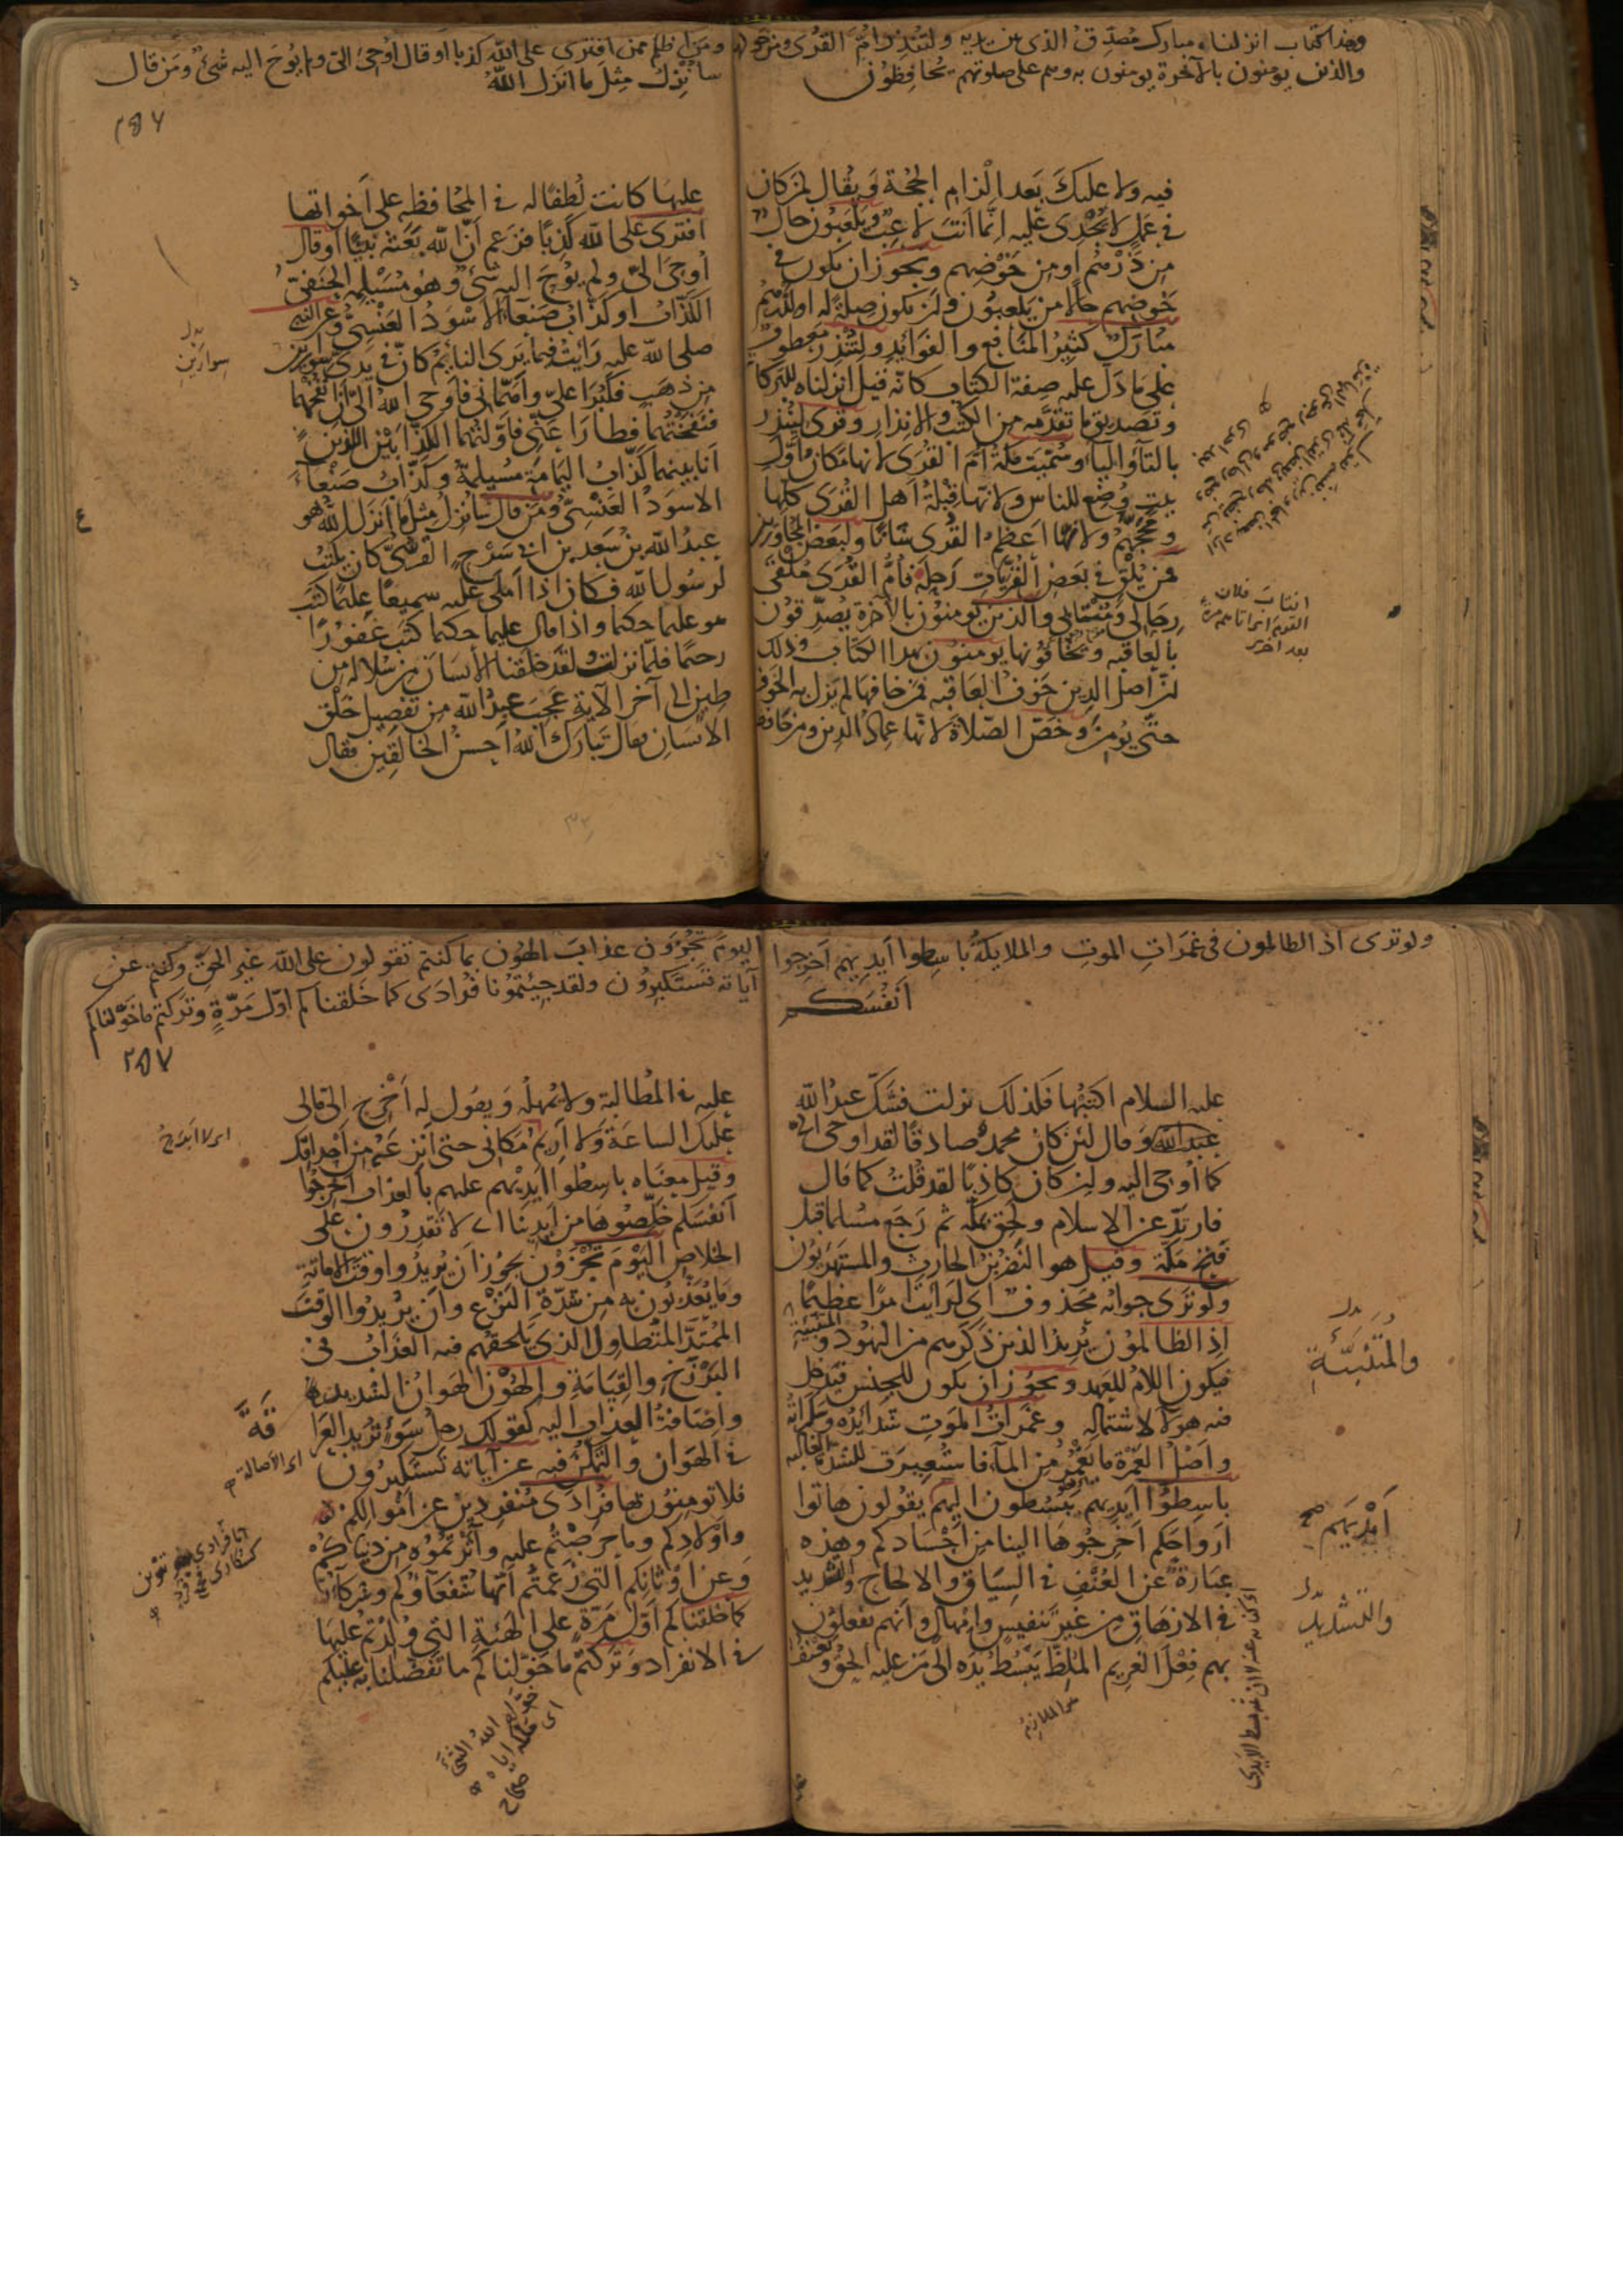 وهذا كتاب انزلناه مبارك مصدق الذى بين يديه ولتنذر ام القرى ومن حولها
والذين يومنون بالآخرة يومنون به وهم على صلوتهم يحافظون
فيه ولا عليك بعد الزام الحجة ويقال لمن كان
فى عمل لا يجدى عليه انما انت لاعب ويلعبون حال
من ذرهم او من خوضهم ويجوز ان يكون فى
خوضهم حالا من يلعبون وان يكون صلة له او لذرهم
مبارك كثير المنافع والفوائد ولتنذر معطوف
على ما دل عليه صفة الكتاب كانه قيل انزلناه للبركات
وتصديق ما تقدمه من الكتب والانذار وقرى لينذر
بالتاء والياء وسميت مكة ام القرى لانها مكان اول
بيت وضع للناس ولانها قبلة اهل القرى كلها
ومحجهم ولانها اعظم القرى شانا ولبعض المجاورين
فمن يلق فى بعض القريات رحله فام القرى ملقى
رحالى ومنتابى والذين يومنون بالآخرة يصدقون
بالعاقبة ويخافونها يومنون بهذا الكتاب وذلك
ان اصل الدين خوف العاقبة فمن خافها لم يزل به الخوف
حتى يومن وخص الصلاة لانها عماد الدين ومن حافظ
انتاب فلان
القوم اى اتاهم مرة
بعد اخرى
ومن اظلم ممن افترى على الله كذبا او قال اوحى الى ولم يوح اليه شئ ومن قال
سانزل مثل ما انزل الله
عليها كانت لطفا له فى المحافظة على اخواتها
افترى على الله كذبا فزعم ان الله بعثه نبيا او قال
اوحى الى ولم يوح اليه شئ وهو مسيلمة الحنفى
الكذاب او كذاب صنعاء الاسود العنسى وعن النبى
صلى الله عليه رايت فيما يرى النائم كان فى يدى سوارين
من ذهب فكبرا على واهمانى فاوحى الله الى ان انفخهما
فنفختهما فطارا عنى فاولتهما الكذابين اللذين
انا بينهما كذاب اليمامة مسيلمة وكذاب صنعاء
الاسود العنسى ومن قال سانزل مثل ما انزل الله هو
عبد الله بن سعد بن ابى سرح القرشى كان يكتب
لرسول الله فكان اذا املى عليه سميعا عليما كتب
هو عليما حكيما واذا قال عليما حكيما كتب غفورا
رحيما فلما نزلت ولقد خلقنا الانسان من سلالة من
طين الى آخر الآية عجب عبد الله من تفصيل خلق
الانسان فقال تبارك الله احسن الخالقين فقال
بدل
سوارين
ولو ترى اذ الظالمون فى غمرات الموت والملايكة باسطوا ايديهم اخرجوا
انفسكم
عليه السلام اكتبها فكذلك نزلت فشك عبد الله
وقال لئن كان محمد صادقا لقد اوحى الى
كما اوحى اليه ولئن كان كاذبا لقد قلت كما قال
فارتد عن الاسلام ولحق بمكة ثم رجع مسلما قبل
فتح مكة وقيل هو النضر بن الحارث والمستهزئون
ولو ترى جوابه محذوف اى لرايت امرا عظيما
اذ الظالمون يريد الذين ذكرهم من اليهود والمتنبية
فيكون اللام للعهد ويجوز ان يكون للجنس فيدخل
فيه هولاء لاشتماله وغمرات الموت شدائده وسكراته
واصل الغمرة ما يغمر من الماء فاستعيرت للشدة الغالبة
باسطوا ايديهم يبسطون اليهم يقولون هاتوا
ارواحكم اخرجوها الينا من اجسادكم وهذه
عبارة عن العنف فى السياق والالحاح والتشديد
فى الازهاق من غير تنفيس وامهال وانهم يفعلون
بهم فعل الغريم الملظ يبسط يده الى من عليه الحق ويعنف
بدل
والمتنبئة
ايديهم صح
بدل
والتشديد
اليوم تجزون عذاب الهون بما كنتم تقولون على الله غير الحق وكنتم عن
آياته تستكبرون ولقد جيتمونا فرادى كما خلقناكم اول مرة وتركتم ما خولناكم
٢٥٧
عليه فى المطالبة ولا يمهله ويقول له اخرج الى مالى
عليك الساعة ولا اريم مكانى حتى انزعه من احداقك
وقيل معناه باسطوا ايديهم عليهم بالعذاب اخرجوا
انفسكم خلصوها من ايدينا اى لا تقدرون على
الخلاص اليوم تجزون يجوز ان يريدوا وقت الاماتة
وما يعذبون به من شدة النزع وان يريدوا الوقت
الممتد المتطاول الذى يلحقهم فيه العذاب فى
البرزخ والقيامة والهون الهوان الشديد
واضافة العذاب اليه كقولك رجل سوء تريد العراقة
فى الهوان والتمكن فيه عن آياته تستكبرون
فلا تومنون بها فرادى منفردين عن اموالكم
واولادكم وما حرصتم عليه وآثرتموه من دنياكم
وعن اوثانكم التى زعمتم انها شفعاوكم وشركاء
كما خلقناكم اول مرة على الهيئة التى ولدتم عليها
فى الانفراد وتركتم ما خولناكم ما تفضلنا به عليكم
اى لا ابرح
اى الاصالة
خوله الله الشئ
اى ملكه اياه
صحاح